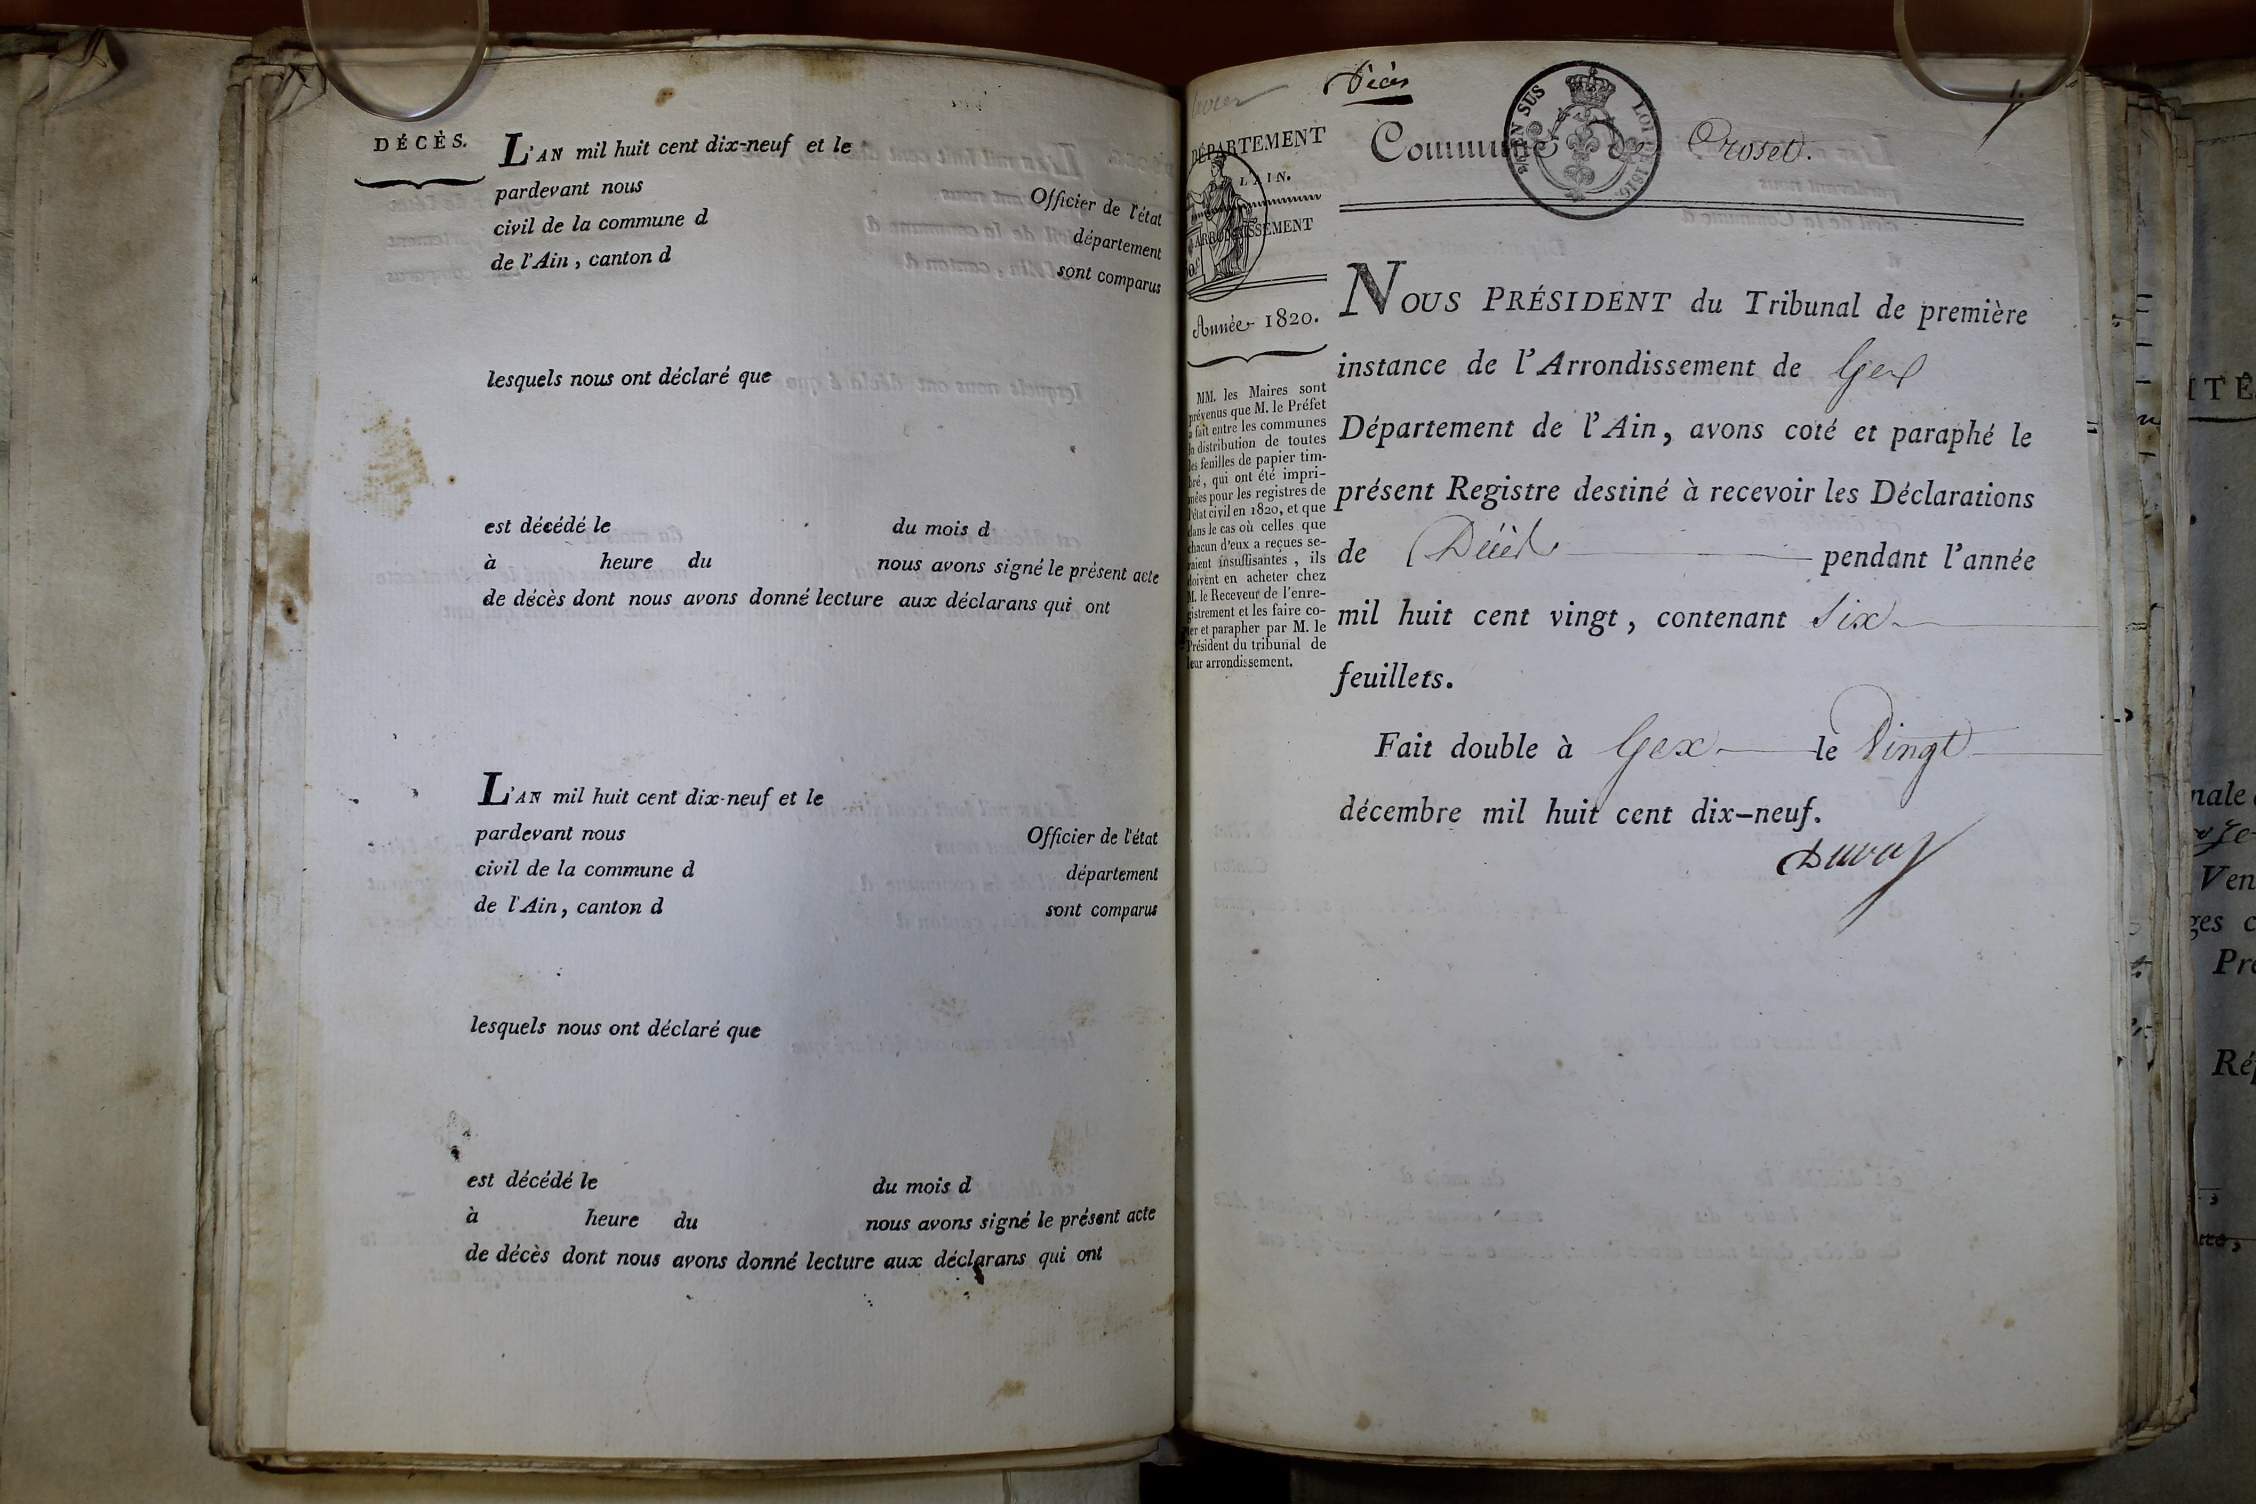 DÉCÈS.
L'AN mil huit cent dix-neuf et le
pardevant nous Officier de l'état
civil de la commune d département
de l'Ain, canton d sont comparus
lesquels nous ont déclaré que
est décédé le du mois d
à heure du nous avons signé le présent acte
de décès dont nous avons donné lecture aux déclarans qui ont
L'AN mil huit cent dix-neuf et le
pardevant nous Officier de l'état
civil de la commune d département
de l'Ain, canton d sont comparus
lesquels nous ont déclaré que
est décédé le du mois d
à heure du nous avons signé le présent acte
de décès dont nous avons donné lecture aux déclarans qui ont
Décès
DÉPARTEMENT
L'AIN.
ARRONDISSEMENT
Année 1820.
MM. les Maires sont
prévenus que M. le Préfet
a fait entre les communes
la distribution de toutes
les feuilles de papier tim-
bré, qui ont été impri-
mées pour les registres de
l'état civil en 1820, et que
dans le cas où celles que
chacun d'eux a reçues se-
raient insuffisantes, ils
doivent en acheter chez
M. le Receveur de l'enre-
gistrement et les faire co-
ter et parapher par M. le
Président du tribunal de
leur arrondissement.
Commune de Croset.
EN SUS LOI DE 1816.
NOUS PRÉSIDENT du Tribunal de première
instance de l'Arrondissement de Gex
Département de l'Ain, avons coté et paraphé le
présent Registre destiné à recevoir les Déclarations
de Décès pendant l'année
mil huit cent vingt, contenant Six
feuillets.
Fait double à Gex le Vingt
décembre mil huit cent dix-neuf.